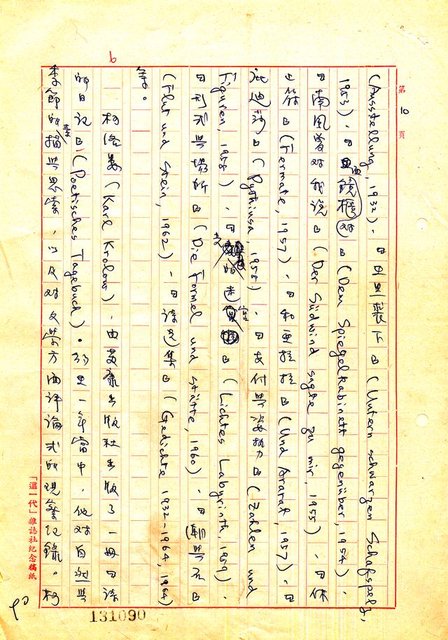 第 10 頁
(Ausstellung, 1932)、『黑裘下』(Unterm schwarzen Schafspelz,
1953)、『面鏡櫃对』(Dem Spiegelkabinett gegenüber, 1954)、
『南風曾对我说』(Der Südwind sagte zu mir, 1955)、『休
止符』(Fermate, 1957)、『和亜拉拉』(Und Ararat, 1957)、『
比迪莎』(Pythiusa, 1958)、『支付與姿勢』(Zahlen und
Figuren, 1958)、『的迷宮』(Lichtes Labyrinth, 1959)、
『形式與場所』(Die Formel und Stätte, 1960)、『潮與石』
(Flut und Stein, 1962)、『詩选集』(Gedichte 1932-1964, 1964)
等。
柯洛婁 (Karl Krolow) 由出版社出版了一冊『詩
的日记』(Poetisches Tagebuch)。是一年當中,他对自然與
季節的描畫與思索,以及对文学方面評論式的观察紀錄。柯
「這一代」雜誌社紀念稿紙
131090